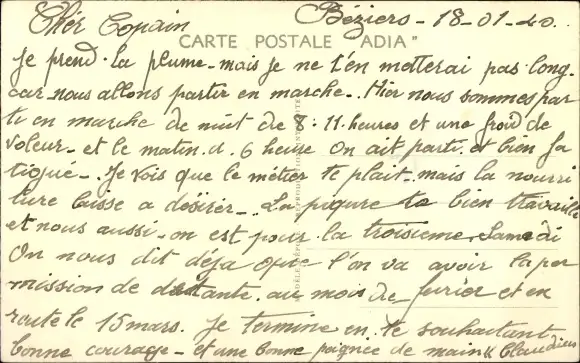 Chér Copain
Béziers - 18-01-40.
CARTE POSTALE "ADIA"
je prend la plume - mais je ne t'en metterai pas long -
car - nous allons partir en marche -. Hier nous sommes par
ti en marche de nuit de 8 . 11. heures et une froid de
voleur - et le matin . d. 6 heure on ait parti. et bien fa
tigué -. Je vois que le métier te plait - mais la nourri
ture laisse a désirer -. La piqure ta bien travaillé
et nous aussi - on est pour la troisieme . Samedi
On nous dit déja que l'on va avoir la per
mission de détante . au mois de fevrier et en
route le 15 mars. Je termine en te souhaitant
bonne courage - et une bonne poignée de main Claudius